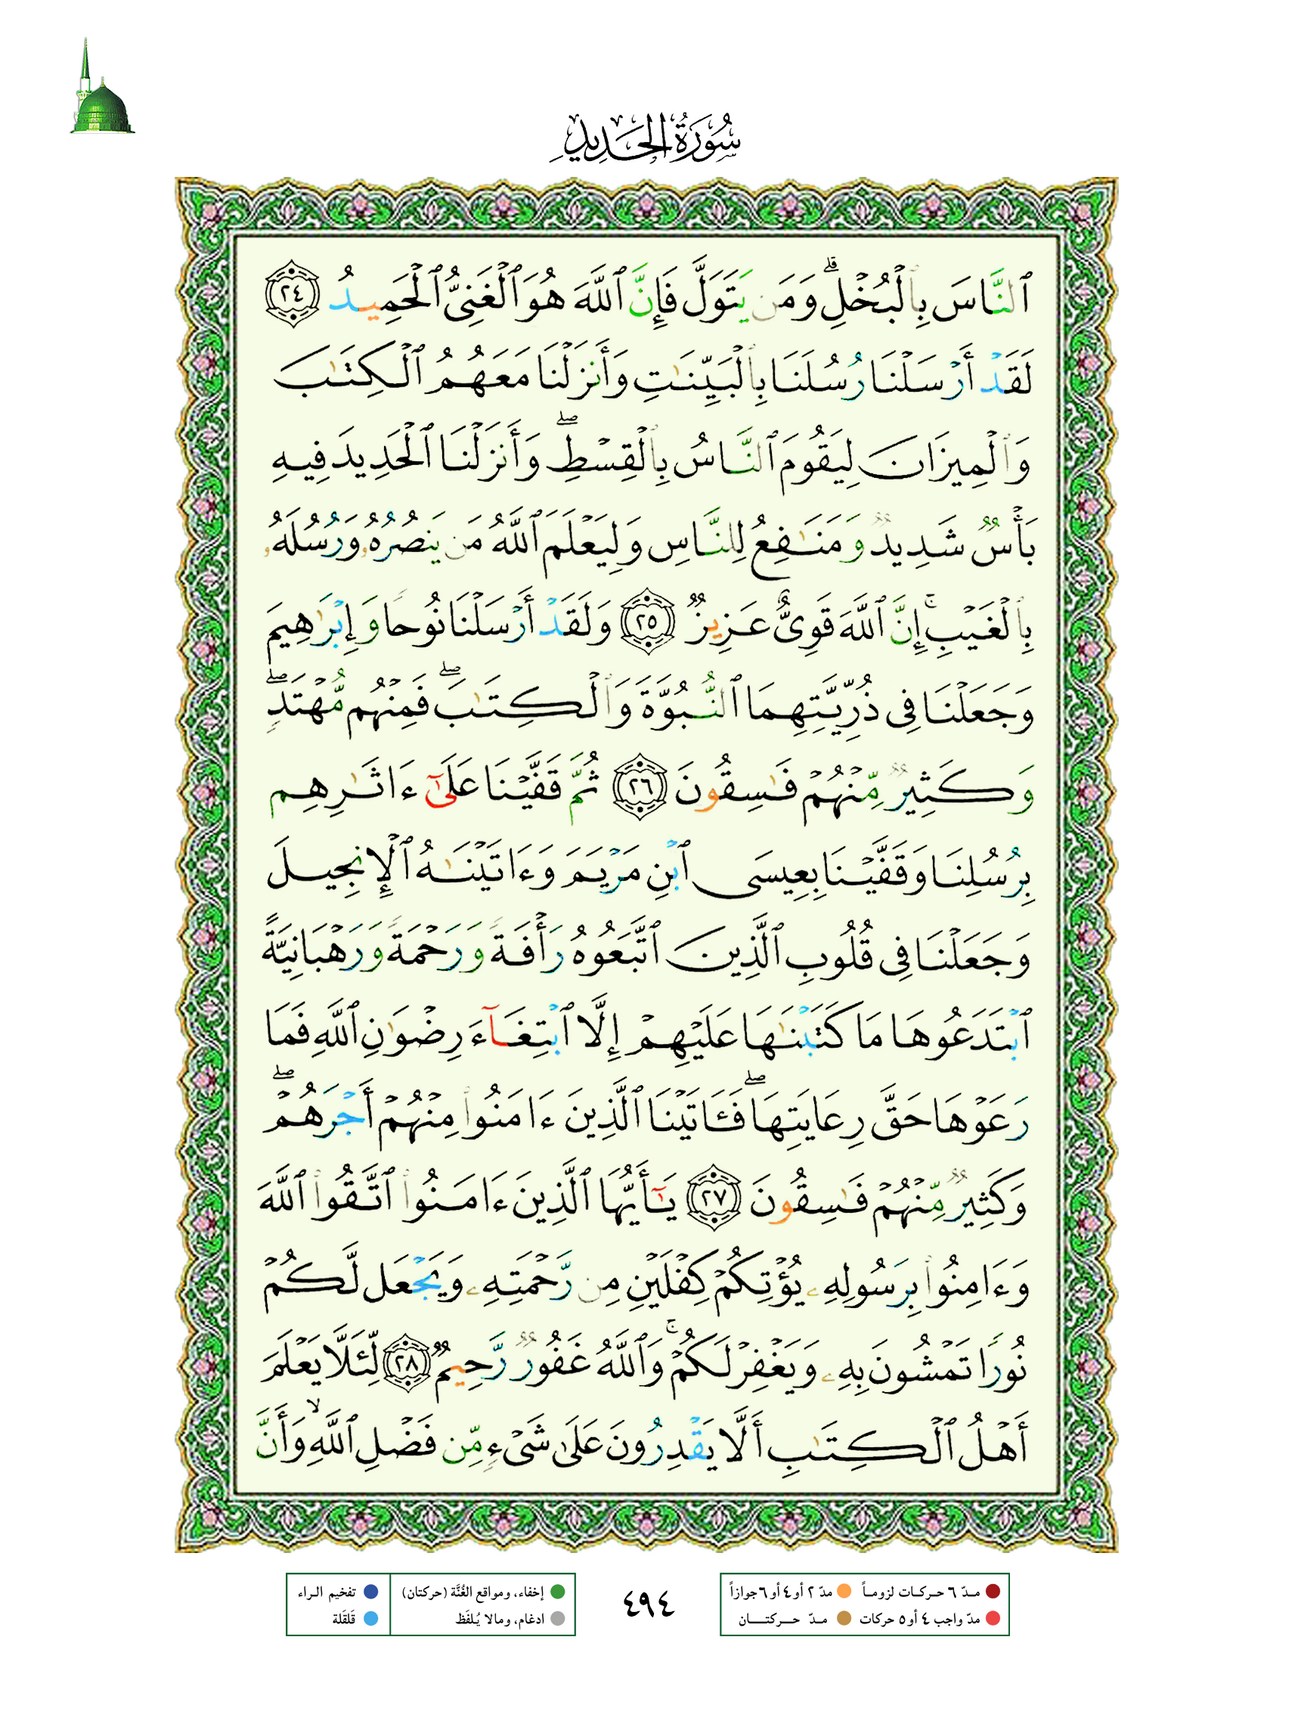 سُورَةُ الحَدِيدِ
ٱلنَّاسَ بِٱلْبُخْلِ ۗ وَمَن يَتَوَلَّ فَإِنَّ ٱللَّهَ هُوَ ٱلْغَنِىُّ ٱلْحَمِيدُ ٢٤
لَقَدْ أَرْسَلْنَا رُسُلَنَا بِٱلْبَيِّنَٰتِ وَأَنزَلْنَا مَعَهُمُ ٱلْكِتَٰبَ
وَٱلْمِيزَانَ لِيَقُومَ ٱلنَّاسُ بِٱلْقِسْطِ ۖ وَأَنزَلْنَا ٱلْحَدِيدَ فِيهِ
بَأْسٌ شَدِيدٌ وَمَنَٰفِعُ لِلنَّاسِ وَلِيَعْلَمَ ٱللَّهُ مَن يَنصُرُهُۥ وَرُسُلَهُۥ
بِٱلْغَيْبِ ۚ إِنَّ ٱللَّهَ قَوِىٌّ عَزِيزٌ ٢٥ وَلَقَدْ أَرْسَلْنَا نُوحًا وَإِبْرَٰهِيمَ
وَجَعَلْنَا فِى ذُرِّيَّتِهِمَا ٱلنُّبُوَّةَ وَٱلْكِتَٰبَ ۖ فَمِنْهُم مُّهْتَدٍ ۖ
وَكَثِيرٌ مِّنْهُمْ فَٰسِقُونَ ٢٦ ثُمَّ قَفَّيْنَا عَلَىٰٓ ءَاثَٰرِهِم
بِرُسُلِنَا وَقَفَّيْنَا بِعِيسَى ٱبْنِ مَرْيَمَ وَءَاتَيْنَٰهُ ٱلْإِنجِيلَ
وَجَعَلْنَا فِى قُلُوبِ ٱلَّذِينَ ٱتَّبَعُوهُ رَأْفَةً وَرَحْمَةً وَرَهْبَانِيَّةً
ٱبْتَدَعُوهَا مَا كَتَبْنَٰهَا عَلَيْهِمْ إِلَّا ٱبْتِغَآءَ رِضْوَٰنِ ٱللَّهِ فَمَا
رَعَوْهَا حَقَّ رِعَايَتِهَا ۖ فَـَٔاتَيْنَا ٱلَّذِينَ ءَامَنُوا۟ مِنْهُمْ أَجْرَهُمْ ۖ
وَكَثِيرٌ مِّنْهُمْ فَٰسِقُونَ ٢٧ يَٰٓأَيُّهَا ٱلَّذِينَ ءَامَنُوا۟ ٱتَّقُوا۟ ٱللَّهَ
وَءَامِنُوا۟ بِرَسُولِهِۦ يُؤْتِكُمْ كِفْلَيْنِ مِن رَّحْمَتِهِۦ وَيَجْعَل لَّكُمْ
نُورًا تَمْشُونَ بِهِۦ وَيَغْفِرْ لَكُمْ ۚ وَٱللَّهُ غَفُورٌ رَّحِيمٌ ٢٨ لِّئَلَّا يَعْلَمَ
أَهْلُ ٱلْكِتَٰبِ أَلَّا يَقْدِرُونَ عَلَىٰ شَىْءٍ مِّن فَضْلِ ٱللَّهِ ۙ وَأَنَّ
مدّ ٦ حركات لزوماً مدّ ٢ أو ٤ أو ٦ جوازاً
مدّ واجب ٤ أو ٥ حركات مدّ حركتان
٤٩٤
إخفاء، ومواقع الغُنَّة (حركتان) تفخيم الراء
ادغام، ومالا يُلفَظ قلقلة